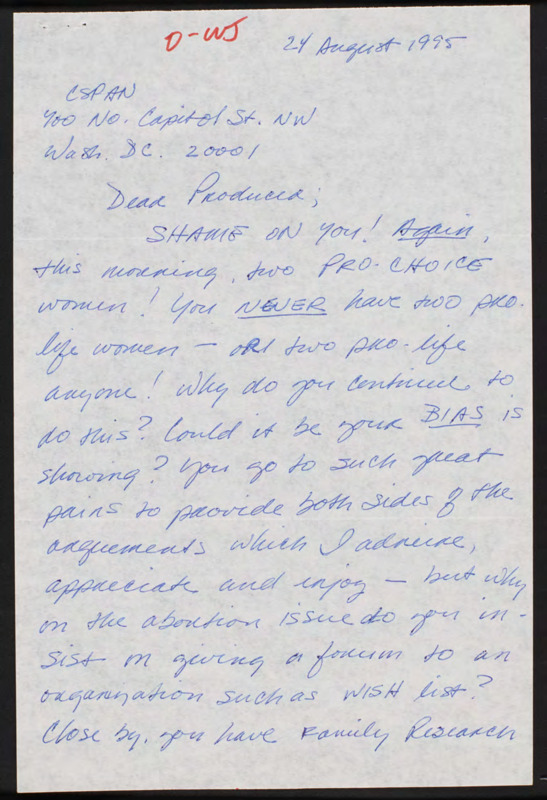 D-WJ
24 August 1995
CSPAN
400 No. Capitol St. NW
Wash. DC. 20001
Dear Producer;
SHAME ON You! Again,
this morning, two PRO-CHOICE
women! You NEVER have two pro-
life women – or two pro-life
anyone! Why do you continue to
do this? Could it be your BIAS is
showing? You go to such great
pains to provide both sides of the
arguements which I admire,
appreciate and enjoy – but why
on the abortion issue do you in-
sist on giving a forum to an
organization such as WISH list?
Close by, you have Family Research